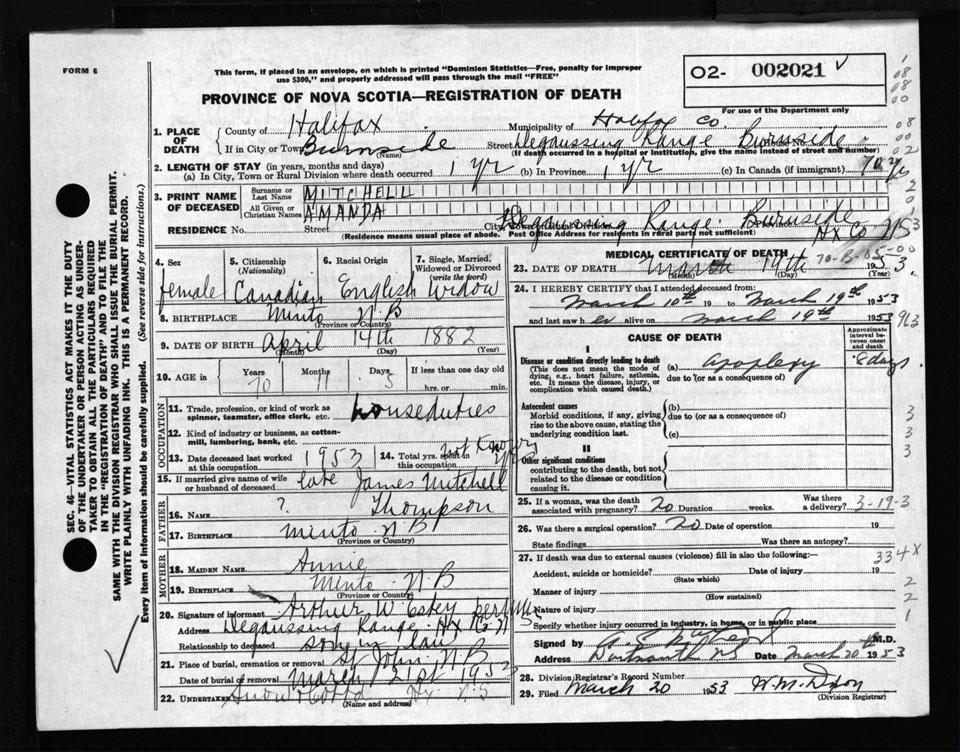 FORM 6
This form, if placed in an envelope, on which is printed "Dominion Statistics—Free, penalty for improper
use $300," and properly addressed will pass through the mail "FREE"
O2- 002021
PROVINCE OF NOVA SCOTIA—REGISTRATION OF DEATH
For use of the Department only
1. PLACE OF DEATH
County of Halifax Municipality of Halifax Co.
If in City or Town Burnside Street Degaussing Range Burnside
(Name) (If death occurred in a hospital or institution, give the name instead of street and number)
2. LENGTH OF STAY (in years, months and days)
(a) In City, Town or Rural Division where death occurred 1 yr (b) In Province 1 yr (c) In Canada (if immigrant) 70 yrs
3. PRINT NAME OF DECEASED
Surname or Last Name MITCHELL
All Given or Christian Names AMANDA
RESIDENCE No. Street Degaussing Range Burnside Province Hx Co NS
(Residence means usual place of abode. Post Office Address for residents in rural parts not sufficient)
4. Sex female
5. Citizenship (Nationality) Canadian
6. Racial Origin English
7. Single, Married, Widowed or Divorced (write the word) Widow
8. BIRTHPLACE Minto N.B
(Province or Country)
9. DATE OF BIRTH April 14th 1882
(Month) (Day) (Year)
10. AGE in Years 70 Months 11 Days 5 If less than one day old hrs. or min.
OCCUPATION
11. Trade, profession, or kind of work as spinner, teamster, office clerk, etc. houseduties
12. Kind of industry or business, as cotton-mill, lumbering, bank, etc.
13. Date deceased last worked at this occupation 1953
14. Total yrs. spent in this occupation not known
15. If married give name of wife or husband of deceased late James Mitchell
FATHER
16. NAME ? Thompson
17. BIRTHPLACE Minto N.B
(Province or Country)
MOTHER
18. MAIDEN NAME Annie
19. BIRTHPLACE Minto N.B
(Province or Country)
20. Signature of informant Arthur W Estey
Address Degaussing Range Hx Co N
Relationship to deceased son in law
21. Place of burial, cremation or removal St John N.B
Date of burial or removal March 21st 1953
22. UNDERTAKER Snow & Co Ltd Hx N.S
(Name and address)
MEDICAL CERTIFICATE OF DEATH
23. DATE OF DEATH March 19th 1953
(Month) (Day) (Year)
24. I HEREBY CERTIFY that I attended deceased from:
March 10th 19 to March 19th 1953
and last saw h er alive on March 19th 1953
CAUSE OF DEATH
Approximate interval between onset and death
I
Disease or condition directly leading to death
(This does not mean the mode of dying, e.g., heart failure, asthenia, etc. It means the disease, injury, or complication which caused death.)
(a) apoplexy 8 days
due to (or as a consequence of)
Antecedent causes
Morbid conditions, if any, giving rise to the above cause, stating the underlying condition last.
(b)
due to (or as a consequence of)
(c)
II
Other significant conditions
contributing to the death, but not related to the disease or condition causing it.
25. If a woman, was the death associated with pregnancy? no Duration weeks. Was there a delivery? 3-19-3
26. Was there a surgical operation? no Date of operation 19
State findings Was there an autopsy?
27. If death was due to external causes (violence) fill in also the following:— 334X
Accident, suicide or homicide? Date of injury 19
(State which)
Manner of injury
(How sustained)
Nature of injury
Specify whether injury occurred in industry, in home, or in public place
Signed by M.D.
Address Dartmouth NS Date March 20th 1953
28. Division Registrar's Record Number
29. Filed March 20 1953 W.M. Dixon
(Division Registrar)
SEC. 46—VITAL STATISTICS ACT MAKES IT THE DUTY
OF THE UNDERTAKER OR PERSON ACTING AS UNDER-
TAKER TO OBTAIN ALL THE PARTICULARS REQUIRED
IN THE "REGISTRATION OF DEATH" AND TO FILE THE
SAME WITH THE DIVISION REGISTRAR WHO SHALL ISSUE THE BURIAL PERMIT.
WRITE PLAINLY WITH UNFADING INK. THIS IS A PERMANENT RECORD.
Every item of information should be carefully supplied. (See reverse side for instructions.)